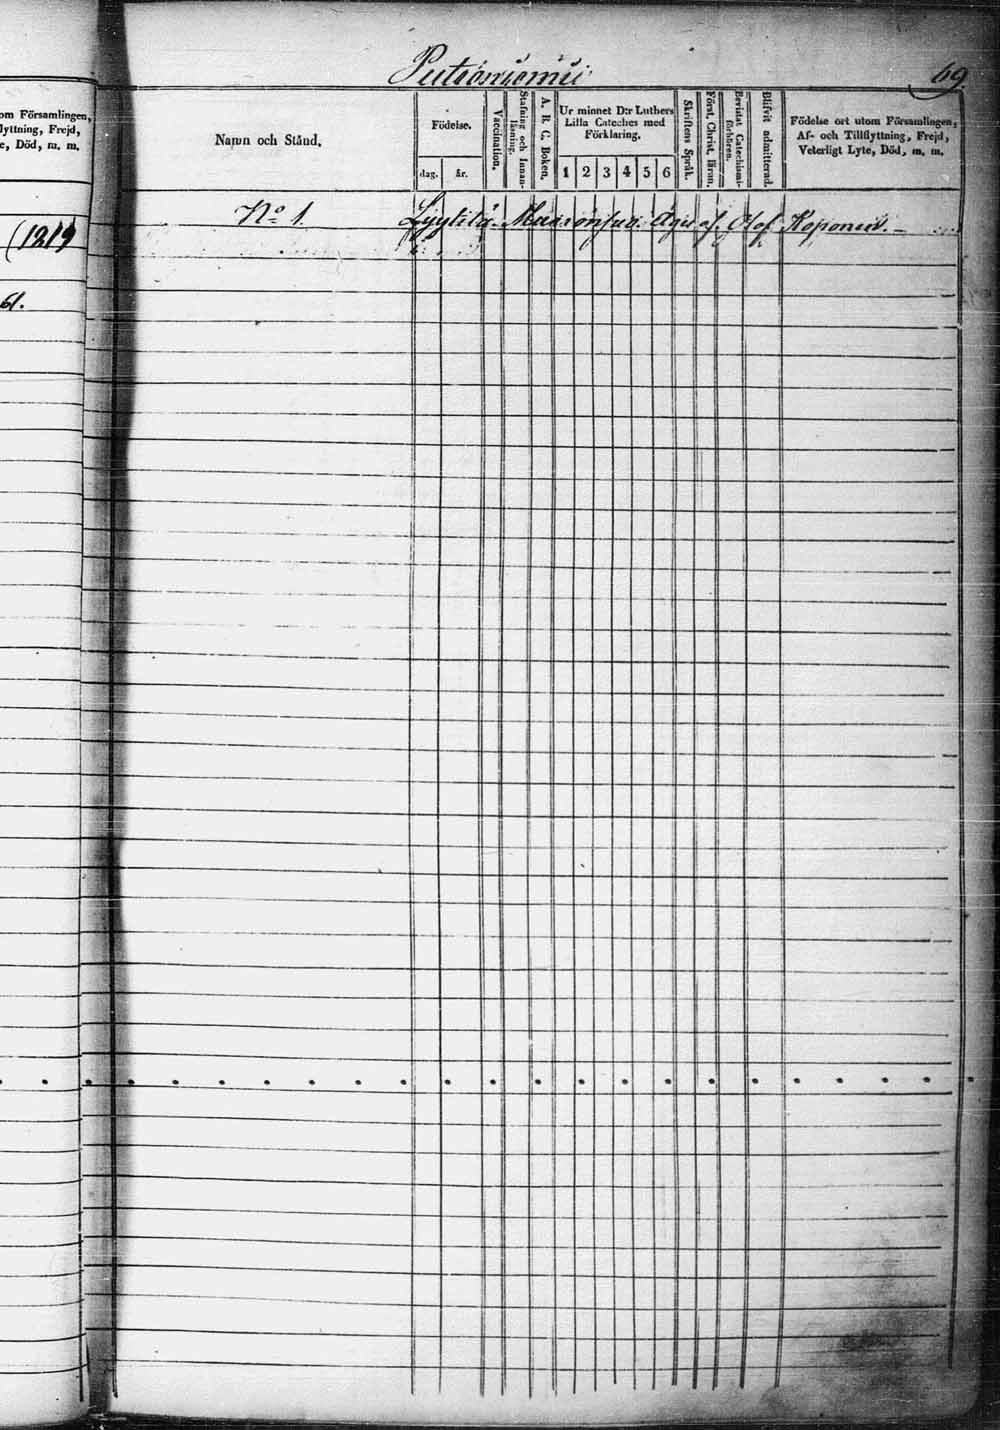 69.
om Församlingen,
lyttning, Frejd,
e, Död, m. m.
(1219
61.
Namn och Stånd.
Födelse.
dag. år.
Vaccination.
Stafning och Innan-
läsning.
A. B. C. Boken.
Ur minnet D:r Luthers
Lilla Cateches med
Förklaring.
1 2 3 4 5 6
Skriftens Språk.
Först. Christ. läran.
Bevistat Catechismi-
förhören.
Blifvit admitterad.
Födelse ort utom Församlingen,
Af- och Tillflyttning, Frejd,
Veterligt Lyte, Död, m. m.
No 1. Lyytilä. af Olof Koponen.